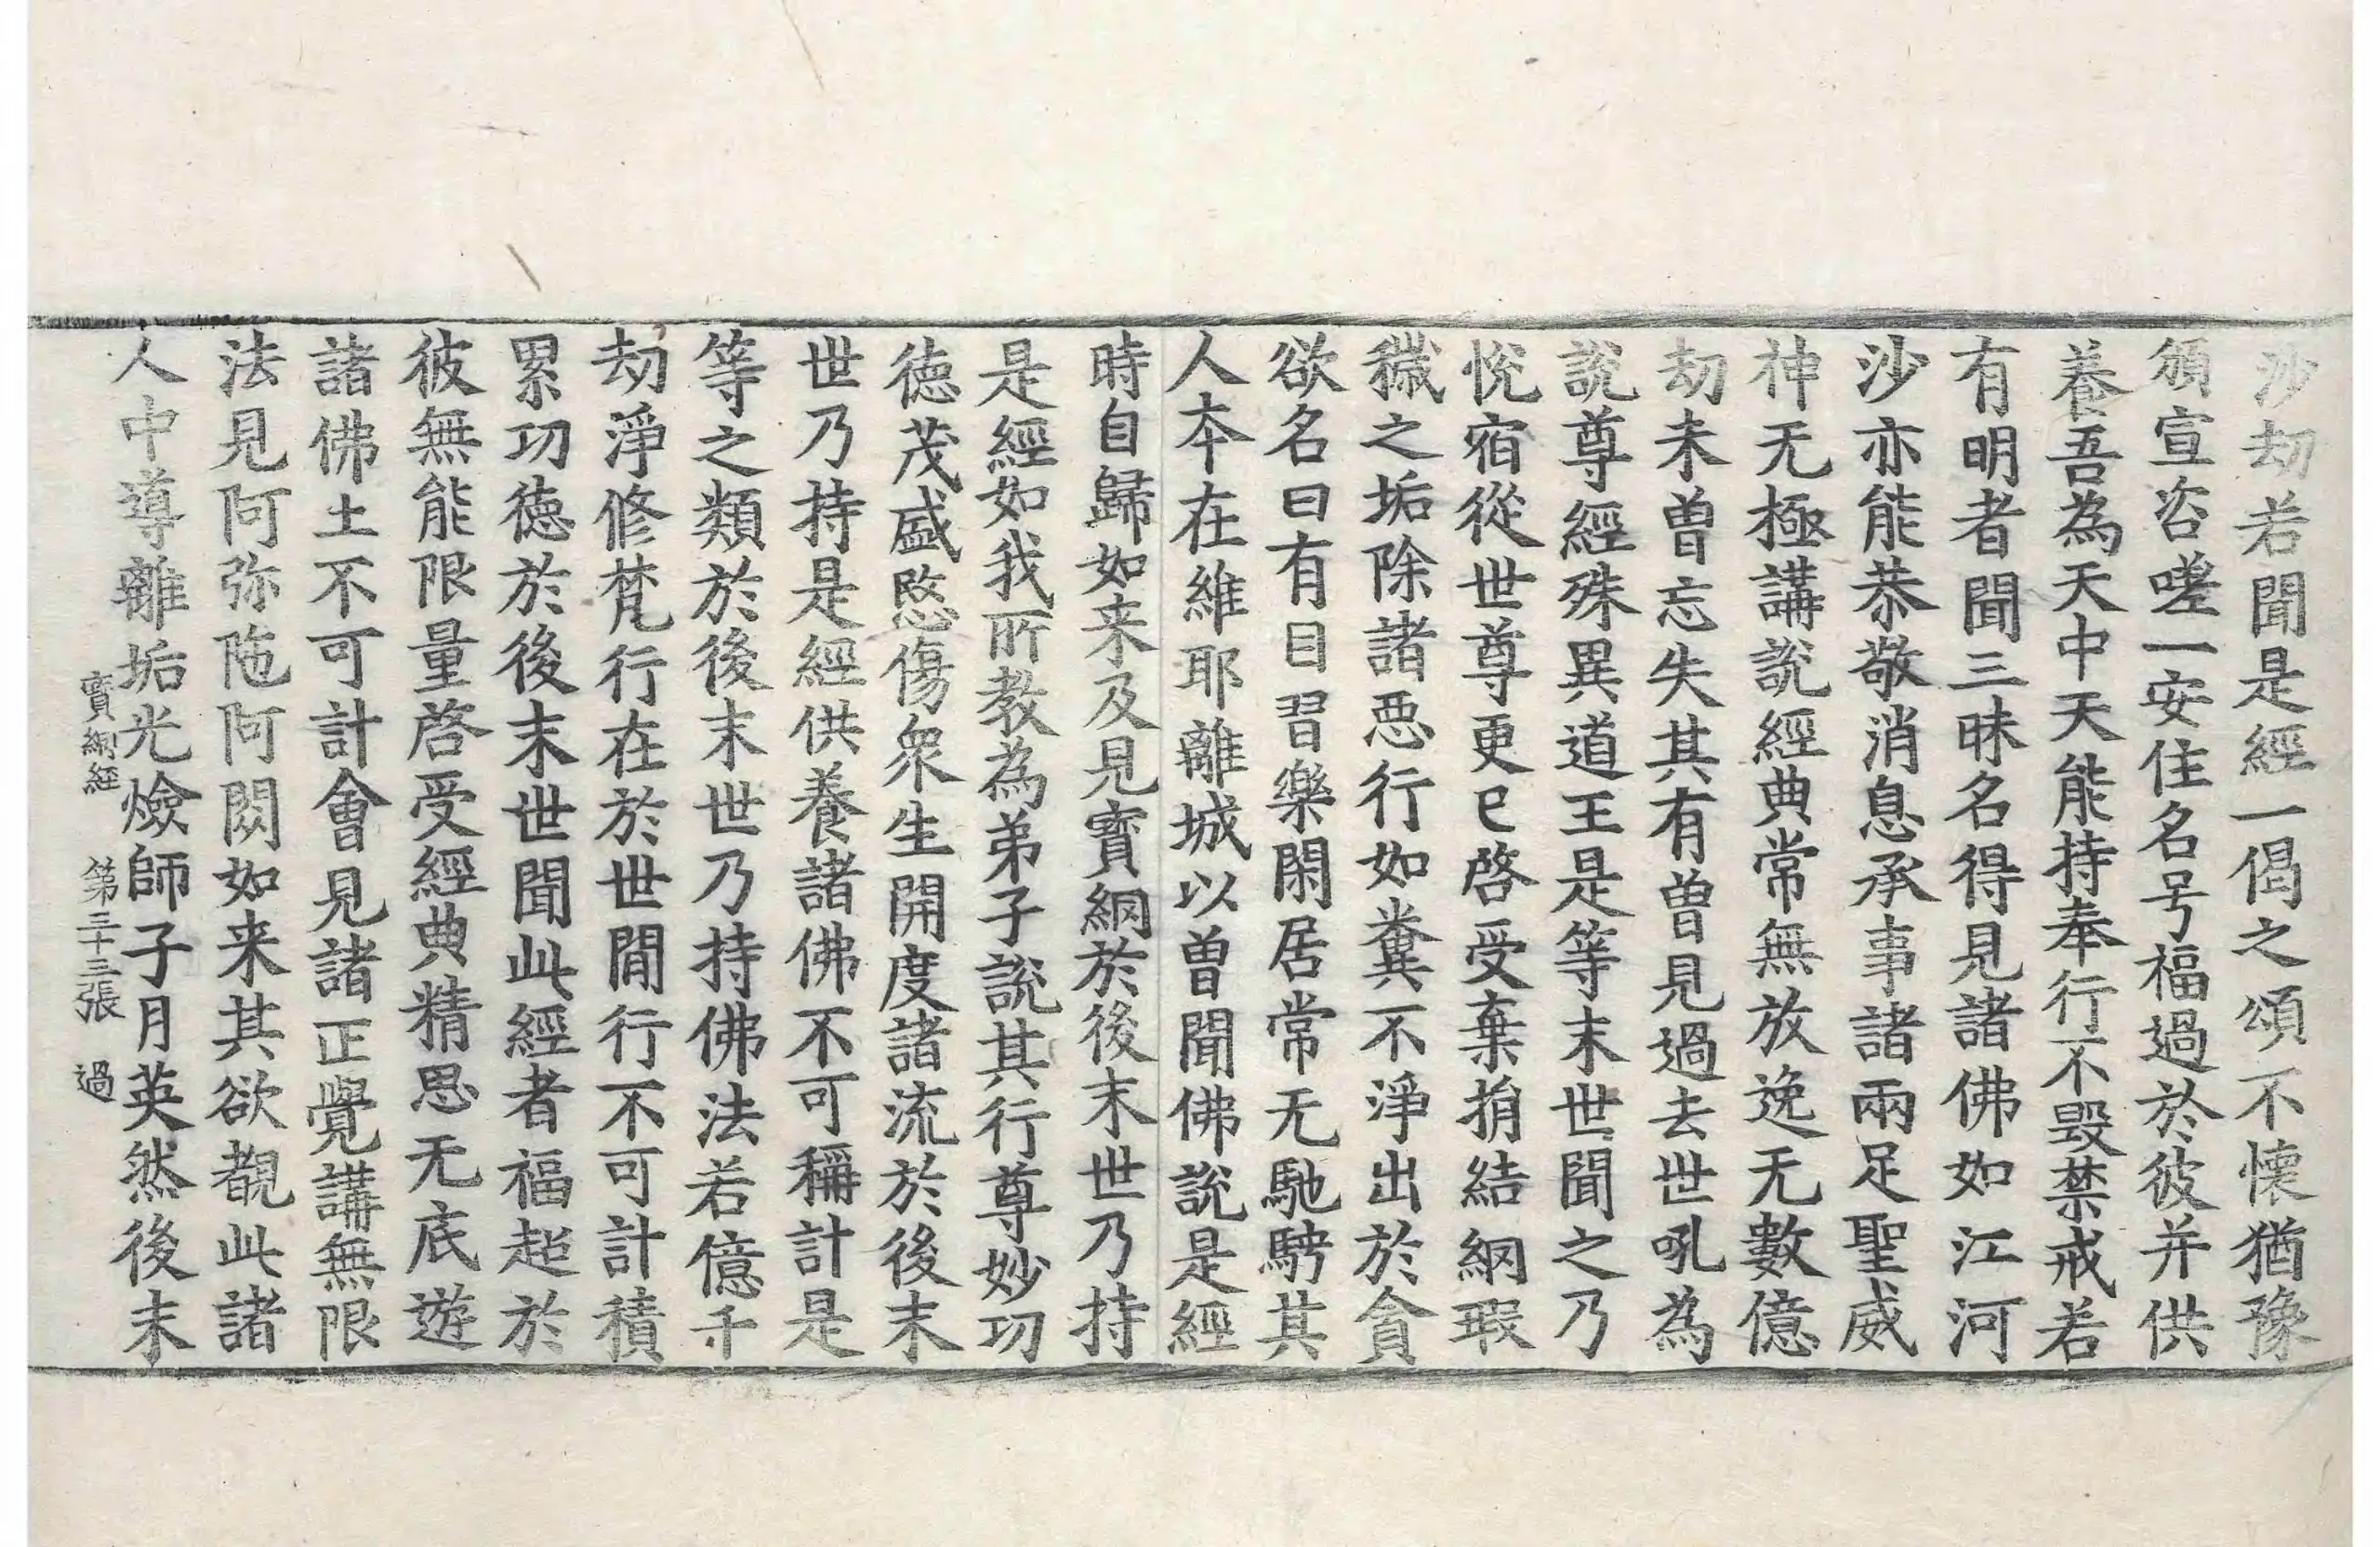 沙劫若聞是經一偈之頌不懷猶豫
頒宣咨嗟一安住名号福過於彼并供
養吾為天中天能持奉行不毀禁戒若
有明者聞三昧名得見諸佛如江河
沙亦能恭敬消息承事諸兩足聖威
神无極講說經典常無放逸无數億
劫未曽忘失其有曽見過去世吼為
說尊經殊異道王是等末世聞之乃
悅宿從世尊更已啓受棄捐結網瑕
穢之垢除諸惡行如糞不淨出於貪
欲名曰有目習樂閑居常无馳騁其
人本在維耶離城以曽聞佛說是經
時自歸如来及見寶網於後末世乃持
是經如我所教為弟子說其行尊妙功
德茂盛愍傷衆生開度諸流於後末
世乃持是經供養諸佛不可稱計是
等之類於後末世乃持佛法若億千
劫淨修梵行在於世閒行不可計積
累功德於後末世聞此經者福超於
彼無能限量啓受經典精思无底遊
諸佛土不可計會見諸正覺講無限
法見阿弥陁阿閦如来其欲覩此諸
人中導離垢光燄師子月英然後末
寶網經 第三十三張 過